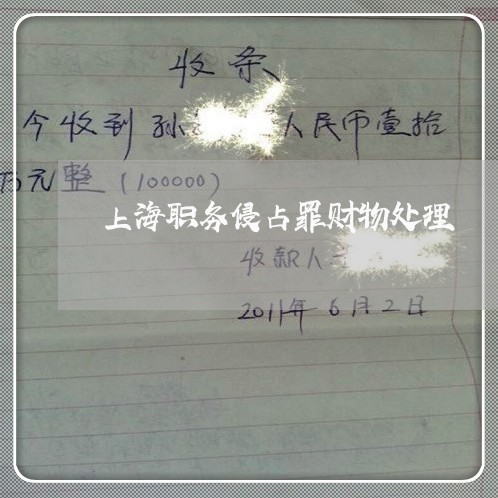 收条
今收到孙 人民币壹拾
万元整（100000）
上海职务侵占罪财物处理
收款人:
2011年6月2日